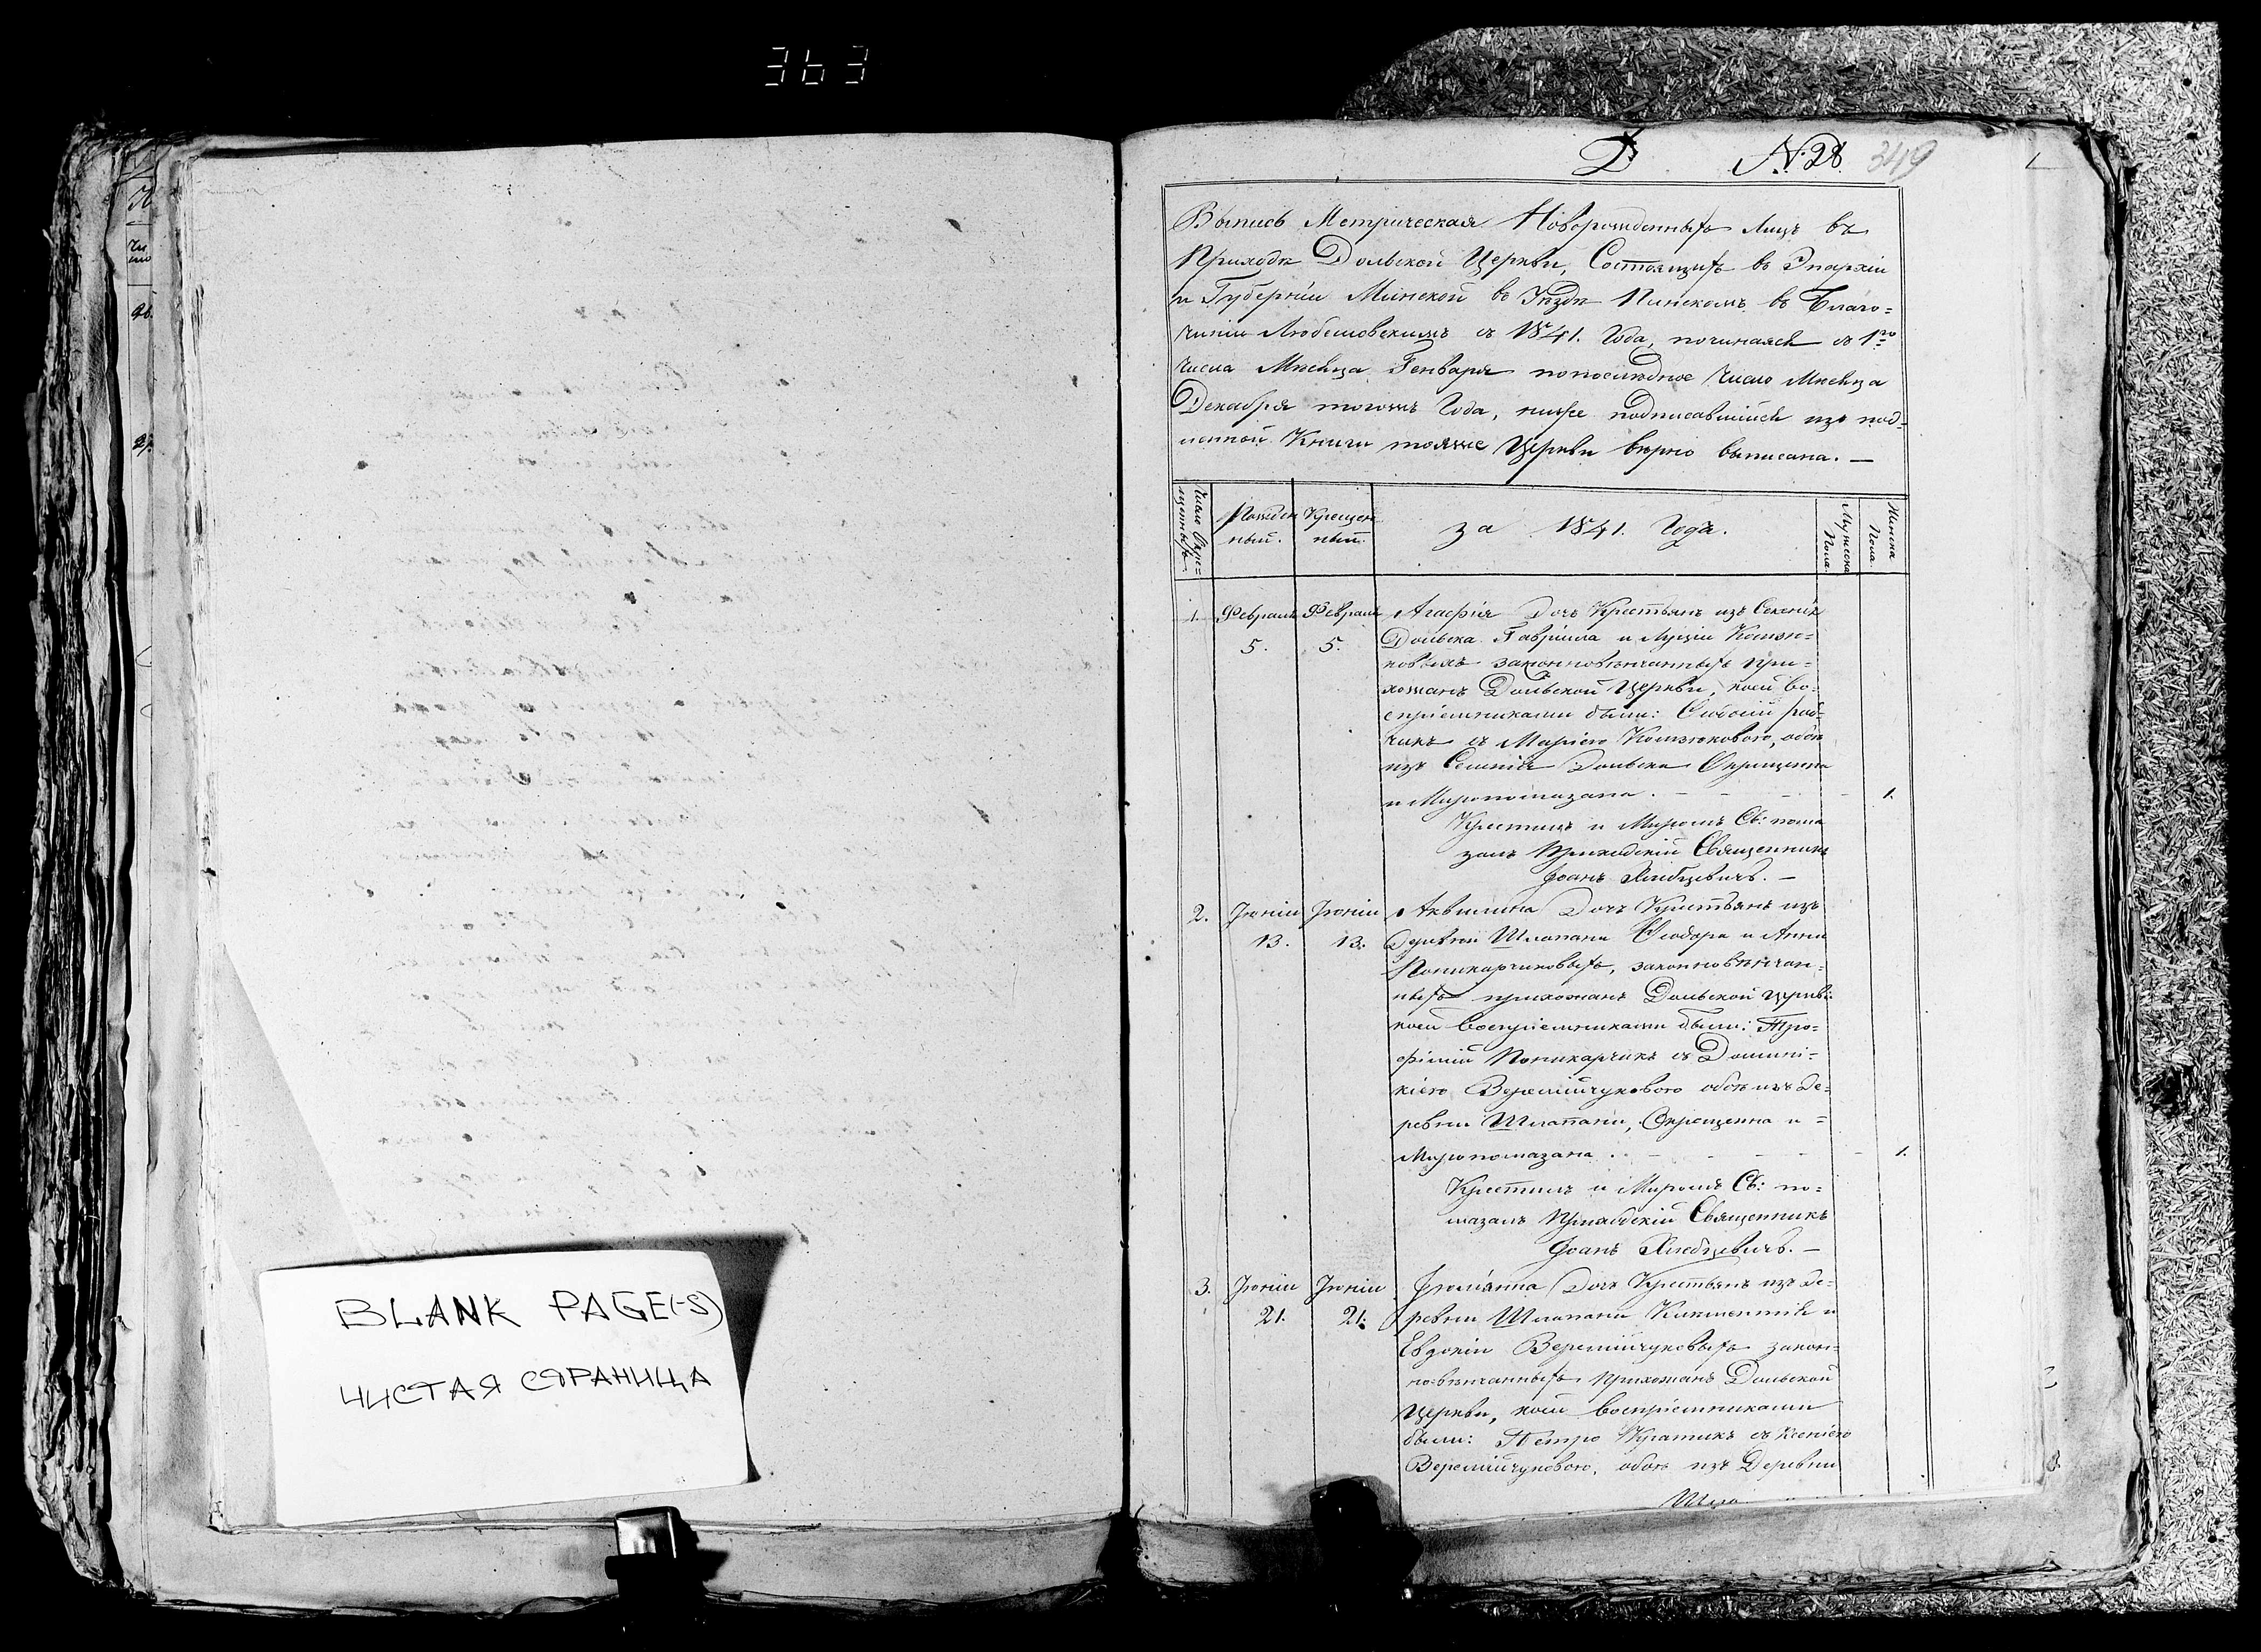 363
D № 28. 349
Выпись Метрическая Новорожденныхъ Лицъ въ
Приходѣ Дольской Церкви, Состоящихъ въ Эпархіи
и Губерніи Минской въ Уѣздѣ Пинскомъ въ Благо=
чиніи Любешовскимъ съ 1841. Года, починаясь съ 1го
числа Мѣсяца Генваря попослѣдное Число Мѣсяца
Декабря тогожъ Года, ниже подписавшійся изъ под=
линной Книги тояже Церкви вѣрно выписана. —
Число Окре=
щенныхъ.
Рожден
ный.
Крещен
ный.
за 1841. Годъ.
Мужеска
Пола.
Женска
Пола.
1. Февраля Февраля Агафія Дочъ Крестьянъ изъ Селенія
5. 5. Дольска Гавріила и Луціи
законновѣнчанныхъ При=
хожанъ Дольской Церкви, коей во=
спріемниками были:
съ Маріею обои
изъ Селенія Дольска Окрещенна
и Миропомазана. 1.
Крестилъ и Миромъ Св: пома
залъ Приходскій Священникъ
Іоанъ Хлебцевичъ. —
2. Іюнія Іюнія Аквилина Дочъ Крестьянъ изъ
13. 13. Деревни Шлапани Ѳеодора и Анны
Поликарчиковыхъ, законновѣнчан=
ныхъ прихожанъ Дольской Церкви:
коей Воспріемниками были: Тро=
фимій Поликарчикъ съ Домини=
кіею Веремійчуковою обои изъ Де=
ревни Шлапани, Окрещенна и =
Миропомазана. 1.
Крестилъ и Миромъ Св: по=
мазалъ Приходскій Священникъ
Іоанъ Хлебцевичъ. —
3. Іюнія Іюнія Іюліанна Дочъ Крестьянъ изъ Де=
21. 21. ревни Шлапани Климентія и
Евдокіи Веремійчуковыхъ закон=
но-вѣнчанныхъ Прихожанъ Дольской
Церкви, коей воспріемниками
были: Петро съ Ксеніею
Веремійчуковою, обои изъ Деревни
Шла
BLANK PAGE(-S)
ЧИСТАЯ СТРАНИЦА